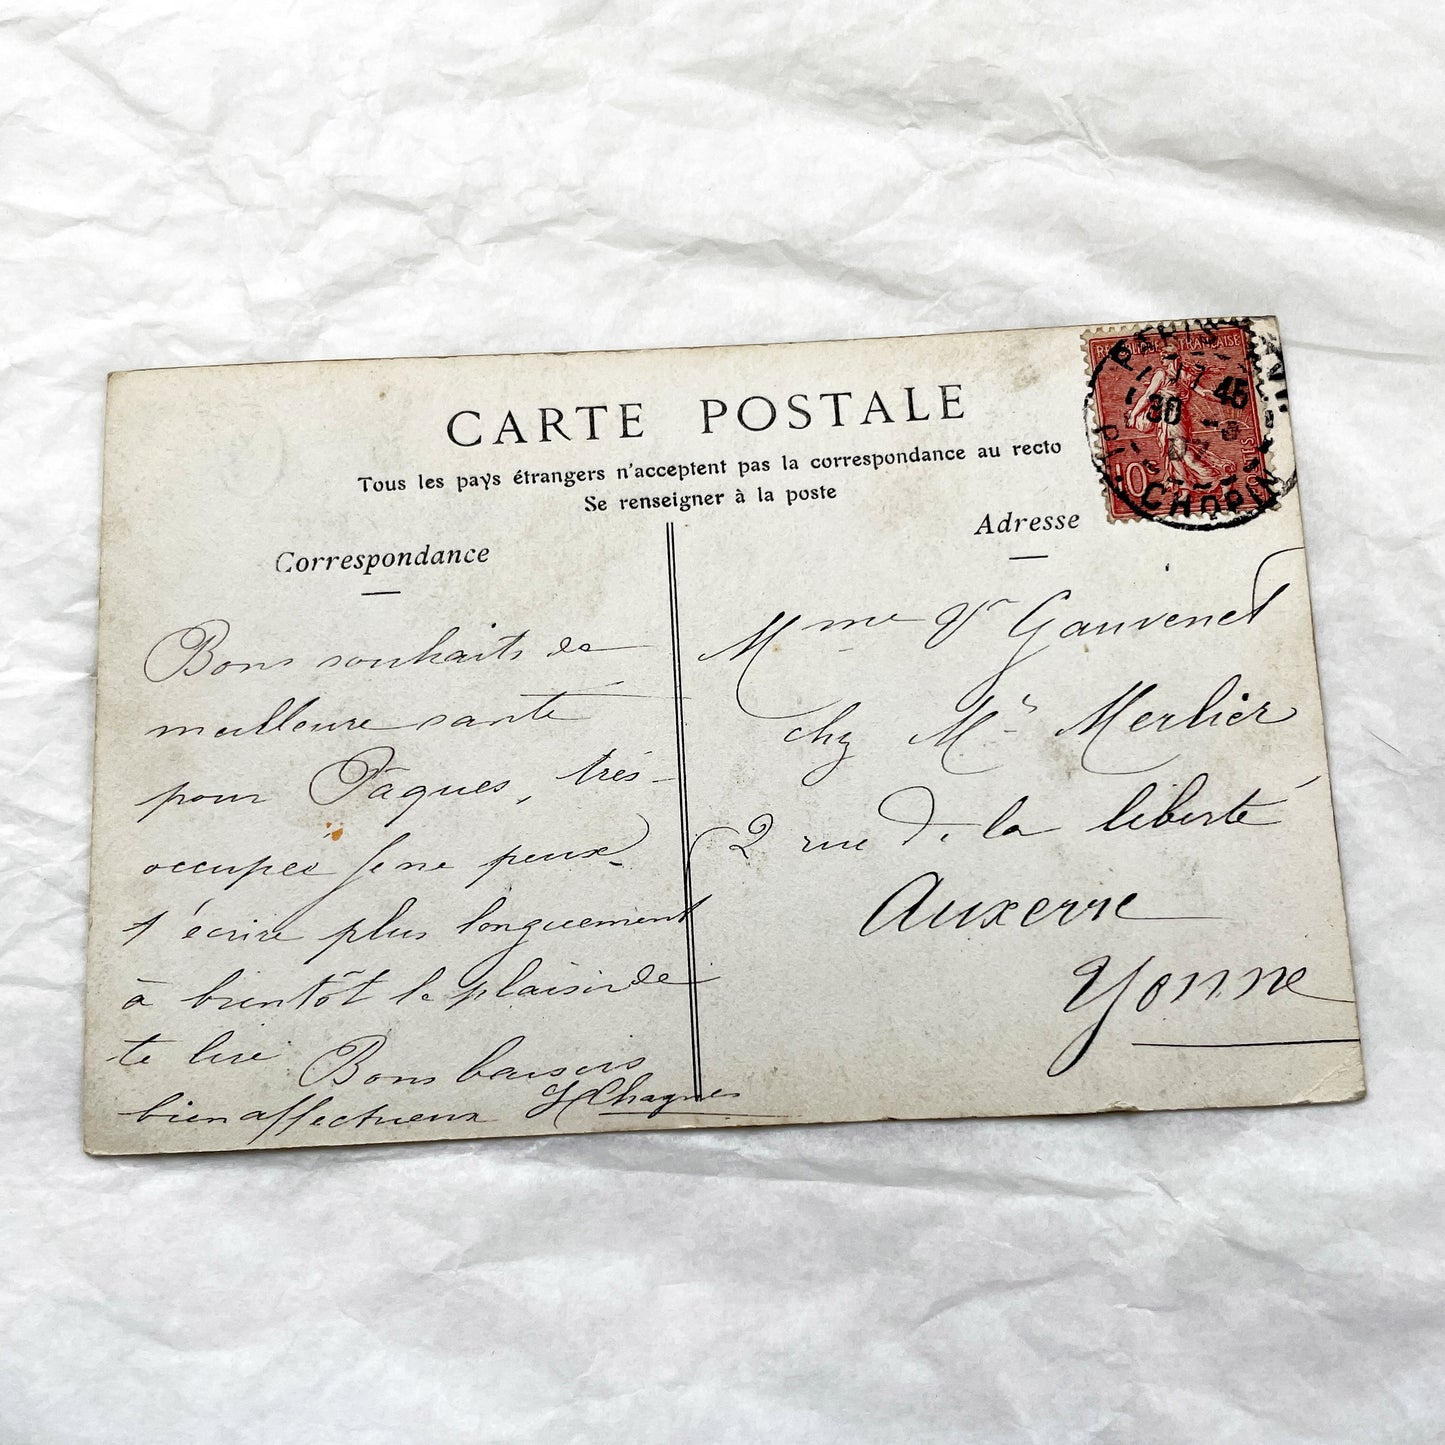 CARTE POSTALE
Tous les pays étrangers n'acceptent pas la correspondance au recto
Se renseigner à la poste
Correspondance
Bons souhaits de
meilleure santé
pour Pâques, très
occupée je ne peux
t'écrire plus longuement
à bientôt le plaisir de
te lire Bons baisers
bien affectueux HChagnes
Adresse
Mme Vve Gauvenet
chz Mr Merlier
2 rue de la liberté
Auxerre
Yonne
REPUBLIQUE FRANÇAISE
10c POSTES
PARIS
17 45
30 -3
07
CHOPIN